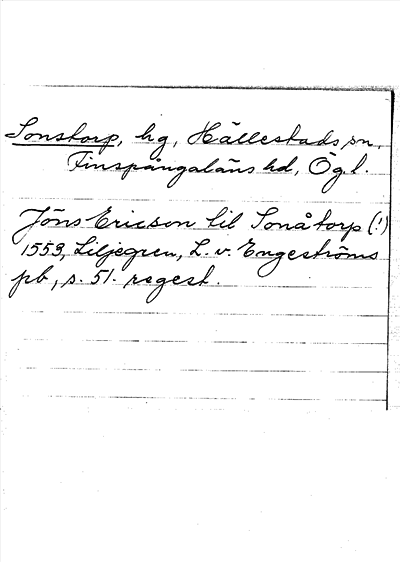 Sonstorp, hg, Hällestads sn,
Finspångaläns hd, Ög.l.
Jöns Ericson til Sonåtorp (!)
1553, Liljegren, L. v. Engeströms
pb, s. 51. regest.